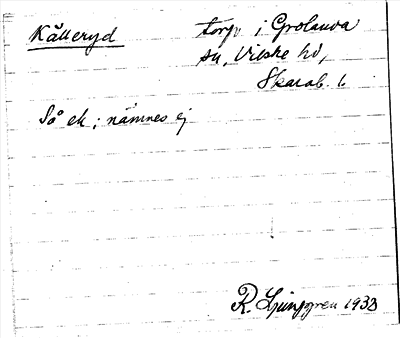 Källeryd
torp i Grolanda
sn, Vilske hd,
Skarab. l.
Så ek; nämnes ej
R. Ljunggren 1933